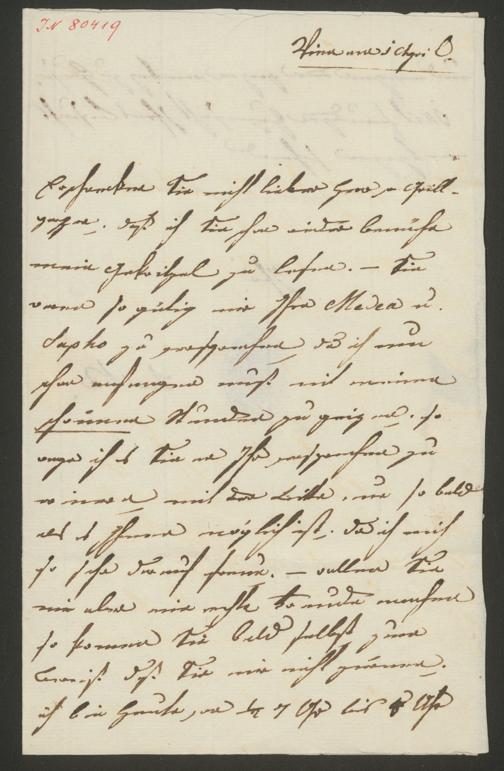 IN 80419
Wien am 5 April
Erschrecken Sie nicht lieber Herr v Grill-
parzer, daß ich Sie schon wieder bemühe
mein Gekritzel zu lesen. – Sie
waren so gütig mir Ihre Medea u.
Sapho zu versprechen, da ich nun
schon anfangen muß mit meinen
Stunden zu geizen, so
wage ich es Sie an Ihr Versprechen zu
erinnern mit der Bitte, nur so bald
als es Ihnen möglich ist, da ich mich
so sehr darauf freue. – wollen Sie
mir aber eine rechte Freude machen
so kommen Sie bald selbst zum
Beweis daß Sie mir nicht zürnen.
ich bin heute, von 7 Uhr bis 8 Uhr